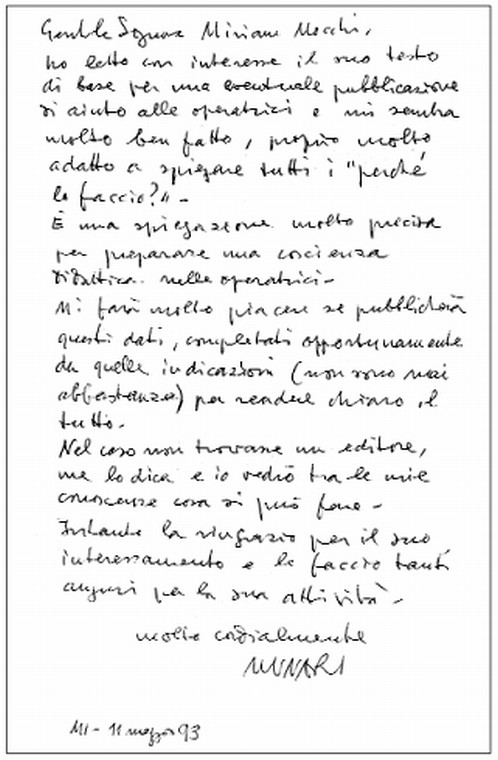 Gentile Signora Miriam Mecchi,
ho letto con interesse il suo testo
di base per una eventuale pubblicazione
di aiuto alle operatrici e mi sembra
molto ben fatto, proprio molto
adatto a spiegare tutti i "perché
lo faccio?" -
È una spiegazione molto precisa
per preparare una coscienza
didattica nelle operatrici -
Mi farà molto piacere se pubblicherà
questi dati, completati opportunamente
da quelle indicazioni (non sono mai
abbastanza) per rendere chiaro il
tutto.
Nel caso non trovasse un editore,
me lo dica e io vedrò tra le mie
conoscenze cosa si può fare -
Intanto la ringrazio per il suo
interessamento e le faccio tanti
auguri per la sua attività -
molto cordialmente
MUNARI
MI - 11 93